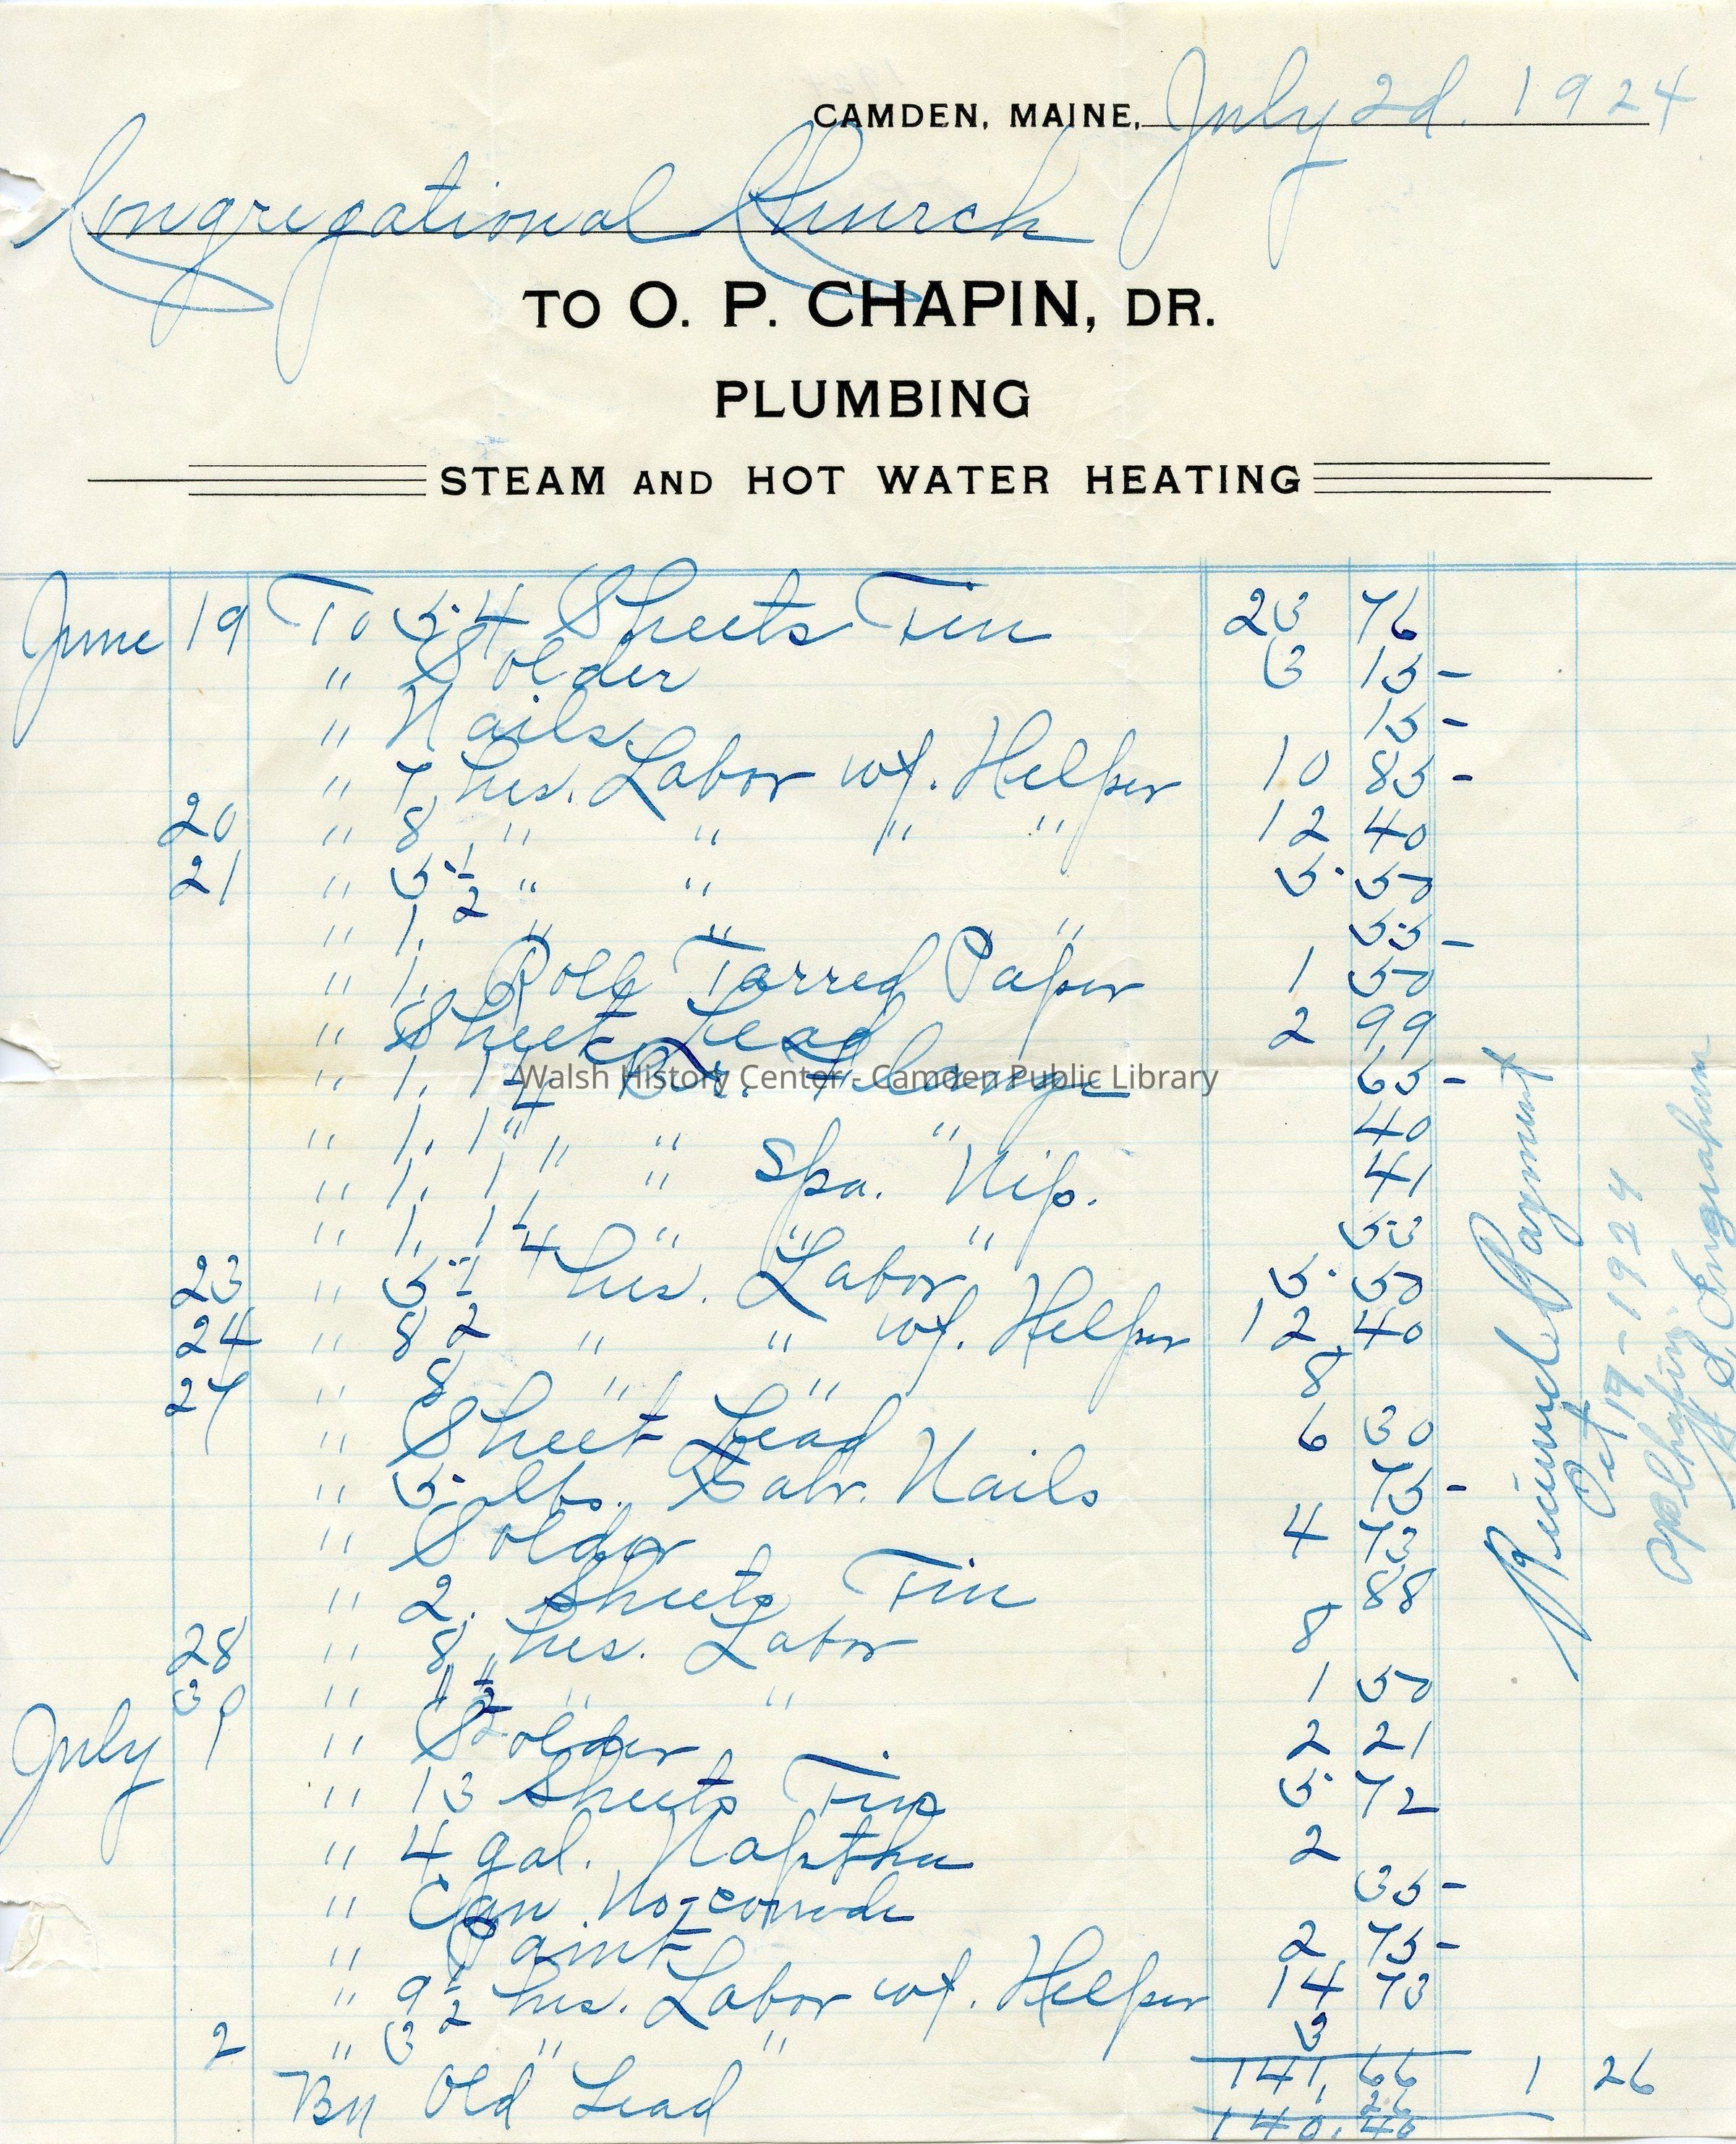 CAMDEN, MAINE, July 2d. 1924
Congregational Church
TO O. P. CHAPIN, DR.
PLUMBING
STEAM AND HOT WATER HEATING
June 19 To 54 Sheets Tin 23 76
" Solder 3 15-
" Nails 15-
" 7 hrs. Labor w/. Helper 10 85-
20 " 8 " " " " 12 40
21 " 5 1/2 " " 5. 50
" 1. " " " 55-
" 1. Roll Tarred Paper 1 50
" Sheet Lead 2 99
" 1. 1 1/4 Br. Flange 65-
" 1. 1" " " " 40
" 1. 1" " Spa. Nip. 41
" 1. 1 1/4 " " " 53
23 " 5 1/2 hrs. Labor 5. 50
24 " 8 " " w/. Helper 12 40
27 " 8 " " 8
" Sheet Lead 6 30
" 5 lbs. Galv. Nails 75-
" Solder 4 73
" 2. Sheets Tin 88
28 " 8 hrs. Labor 8
30 " 1 1/2 " " 1 50
July 1 " Solder 2 21
" 13 Sheets Tin 5. 72
" 4 gal. Naptha 2
" Can No-corrode 35-
" Paint 2 75-
" 9 1/2 hrs. Labor w/. Helper 14 73
2 " 3 " " 3
141. 66
By Old Lead 1 26
1 26
140. 40
Received Payment
Oct 19-1924
OP Chapin
Walsh History Center - Camden Public Library